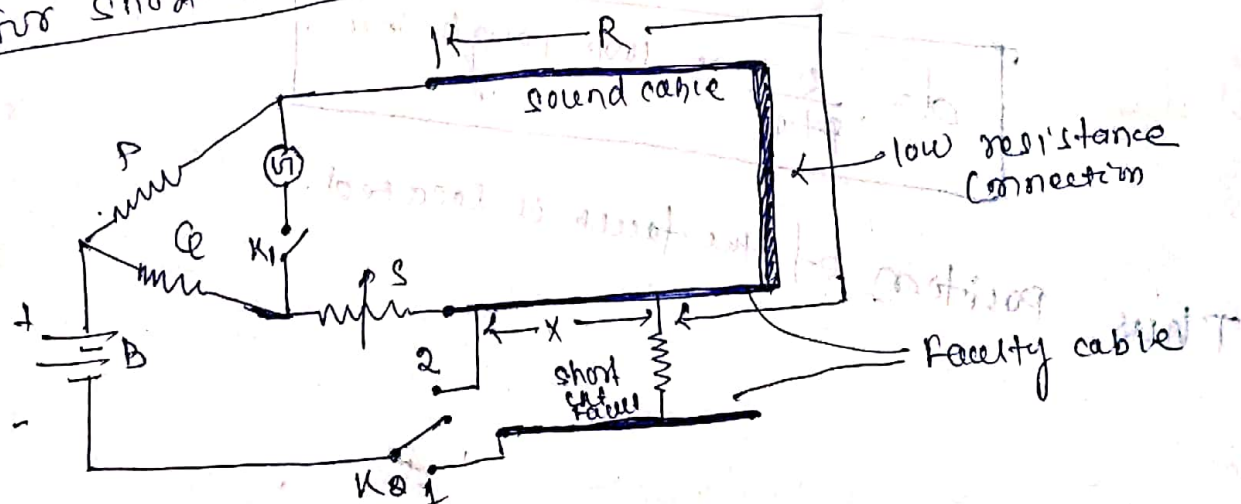 for Shor
R
sound cable
low resistance
connection
P
G
Q
K1
S
+
B
-
X
2
short
ckt
Fault
Faculty cable
K2 1